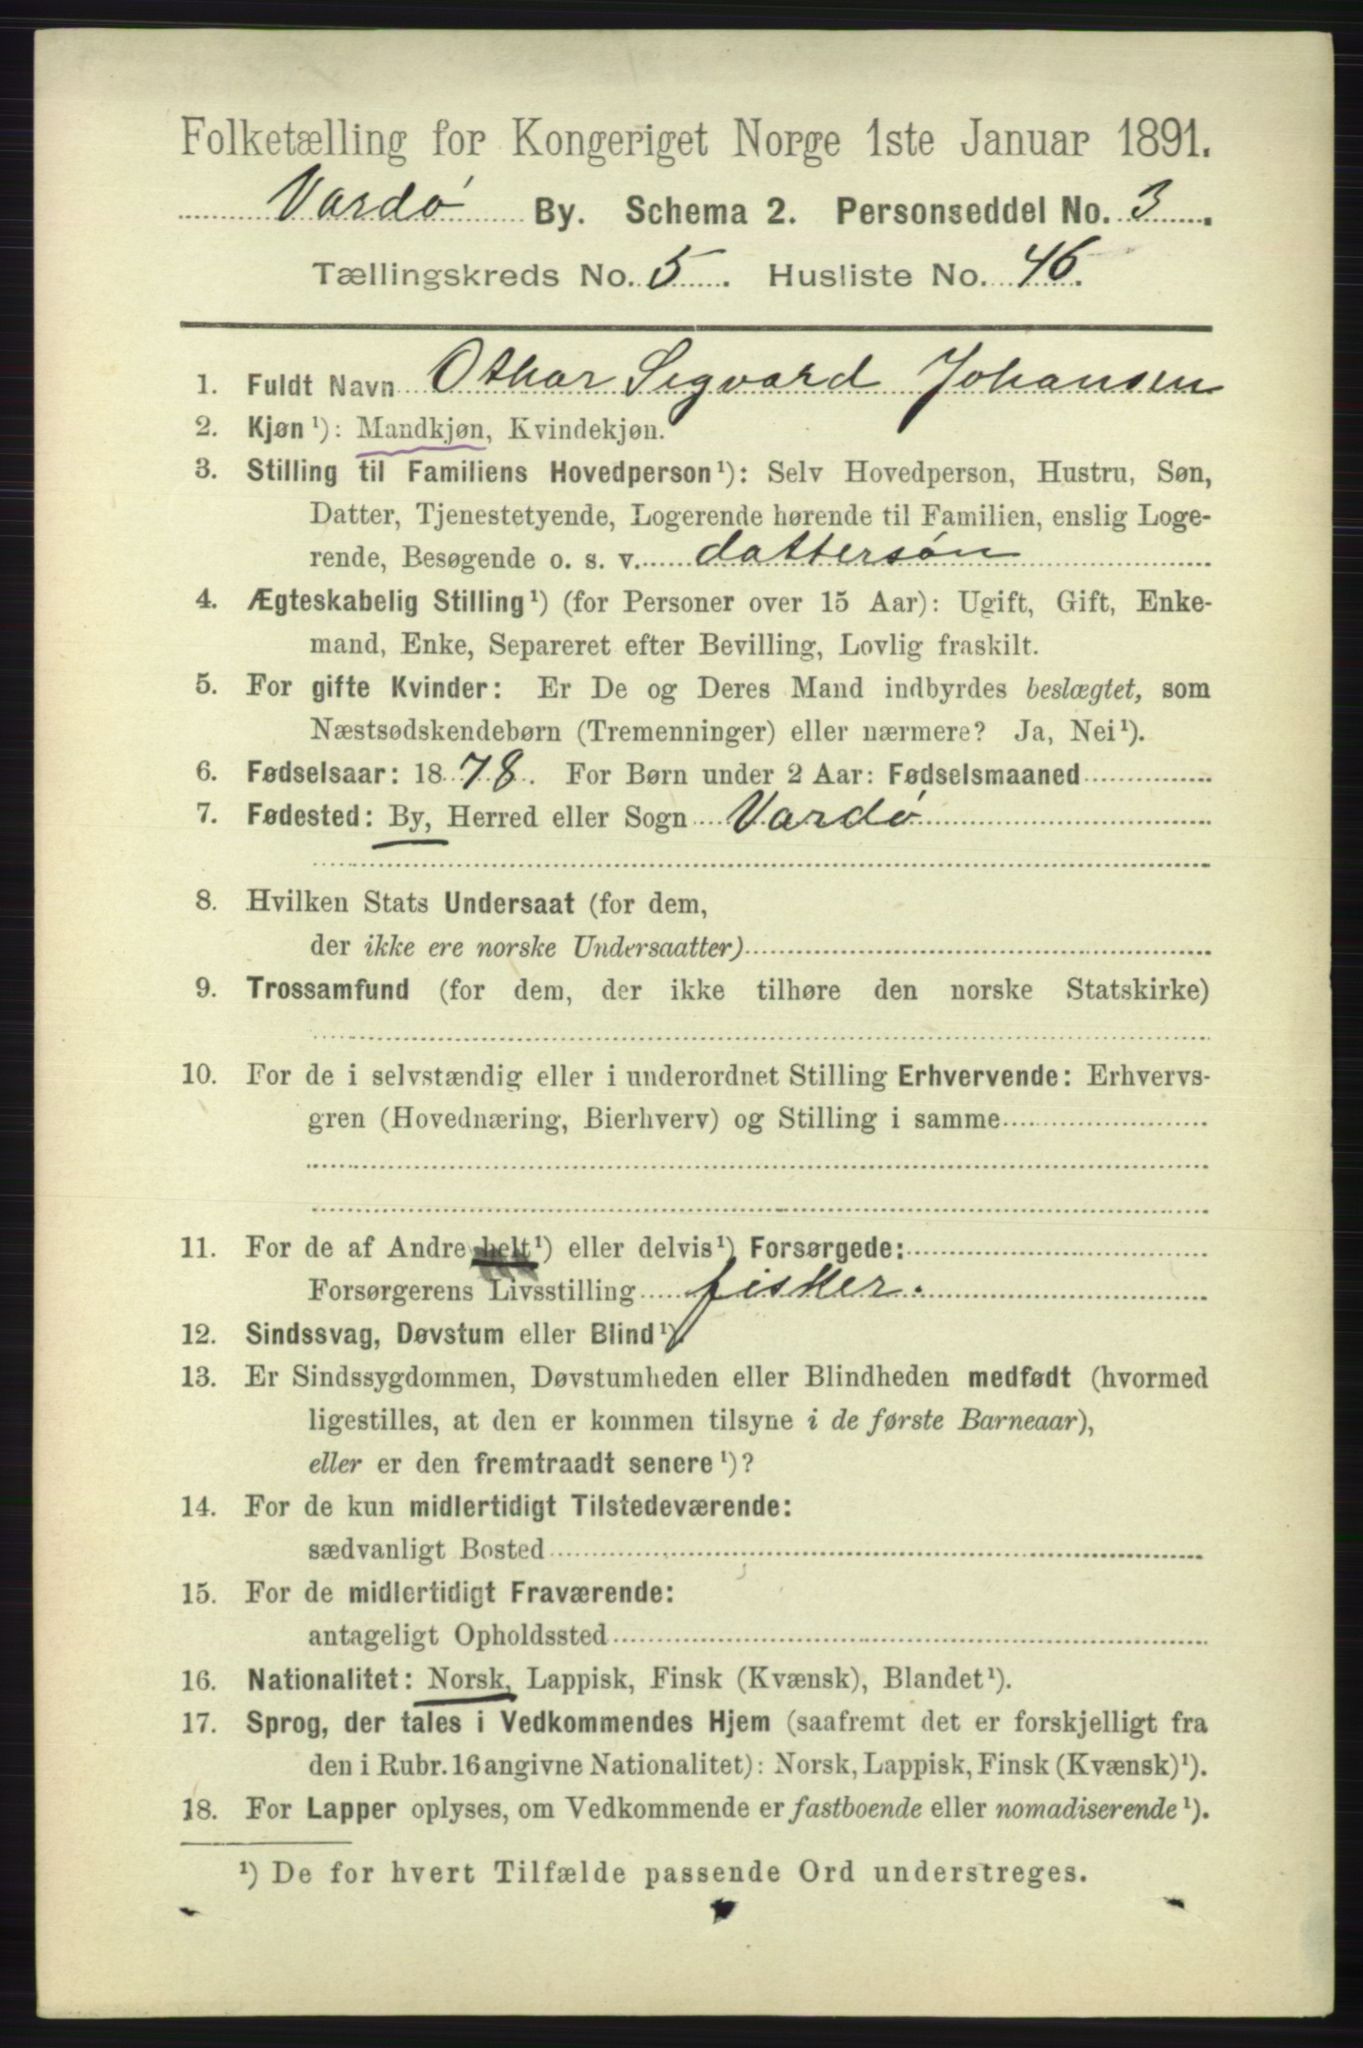 Folketælling for Kongeriget Norge 1ste Januar 1891.
Vardø By. Schema 2. Personseddel No. 3.
Tællingskreds No. 5. Husliste No. 46.
1. Fuldt Navn Othar Segvard Johansen
2. Kjøn¹): Mandkjøn, Kvindekjøn.
3. Stilling til Familiens Hovedperson¹): Selv Hovedperson, Hustru, Søn,
Datter, Tjenestetyende, Logerende hørende til Familien, enslig Loge-
rende, Besøgende o. s. v. dattersøn
4. Ægteskabelig Stilling¹) (for Personer over 15 Aar): Ugift, Gift, Enke-
mand, Enke, Separeret efter Bevilling, Lovlig fraskilt.
5. For gifte Kvinder: Er De og Deres Mand indbyrdes beslægtet, som
Næstsødskendebørn (Tremenninger) eller nærmere? Ja, Nei¹).
6. Fødselsaar: 1878. For Børn under 2 Aar: Fødselsmaaned
7. Fødested: By, Herred eller Sogn Vardø
8. Hvilken Stats Undersaat (for dem,
der ikke ere norske Undersaatter)
9. Trossamfund (for dem, der ikke tilhøre den norske Statskirke)
10. For de i selvstændig eller i underordnet Stilling Erhvervende: Erhvervs-
gren (Hovednæring, Bierhverv) og Stilling i samme
11. For de af Andre helt¹) eller delvis¹) Forsørgede:
Forsørgerens Livsstilling fisker.
12. Sindssvag, Døvstum eller Blind¹).
13. Er Sindssygdommen, Døvstumheden eller Blindheden medfødt (hvormed
ligestilles, at den er kommen tilsyne i de første Barneaar),
eller er den fremtraadt senere¹)?
14. For de kun midlertidigt Tilstedeværende:
sædvanligt Bosted
15. For de midlertidigt Fraværende:
antageligt Opholdssted
16. Nationalitet: Norsk, Lappisk, Finsk (Kvænsk), Blandet¹).
17. Sprog, der tales i Vedkommendes Hjem (saafremt det er forskjelligt fra
den i Rubr. 16 angivne Nationalitet): Norsk, Lappisk, Finsk (Kvænsk)¹).
18. For Lapper oplyses, om Vedkommende er fastboende eller nomadiserende¹).
¹) De for hvert Tilfælde passende Ord understreges.